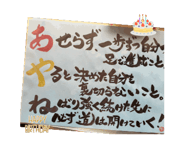 あせらず、一歩ずつ自分の
足で進むこと。
やると決めた自分を
裏切らないこと。
ねばり強く続けた先に
必ず道は開けていく!